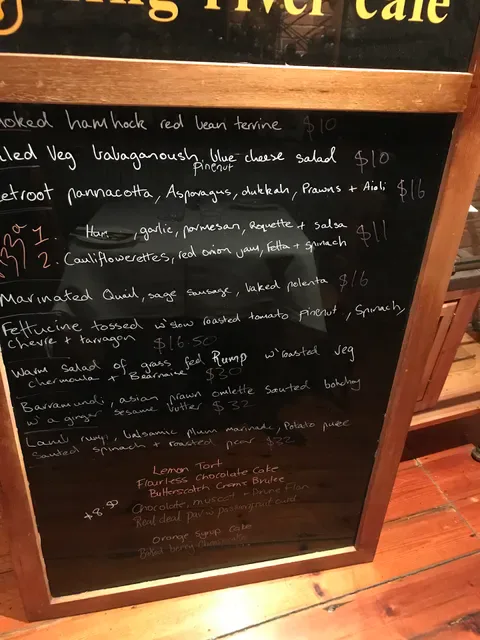 river cafe
hamhock red bean terrine $10
Veg babaganoush, blue cheese salad $10
Pinenut
pannacotta, Asparagus, dukkah, Prawns + Aioli $16
1. Ham, garlic, parmesan, Roquette + salsa
$11
2. Cauliflowerettes, red onion jam, Fetta + Spinach
Marinated Quail, sage sausage, baked polenta $16
Fettucine tossed w slow roasted tomato Pinenut, Spinach,
chevre + tarragon $16.50
Warm salad of grass fed Rump w roasted veg
chermoula + Bearnaise $30
Barramundi, asian prawn omlette Sauted bokchoy
w a ginger sesame butter $32
Lamb rump, balsamic plum marinade, Potato puree
Sauted spinach + roasted pear $32
Lemon Tart
Flourless Chocolate Cake
Butterscotch Creme Brulee
Chocolate, muscat + Prune Flan
Real deal pav w passionfruit curd
Orange Syrup Cake